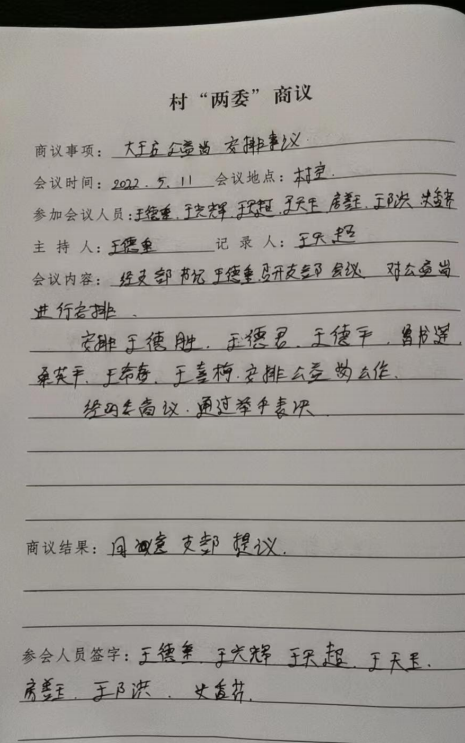 村“两委”商议
商议事项：大王庄公益岗安排事议
会议时间：2022.5.11 会议地点：村室
参加会议人员：王德重、王光辉、王天超、王天玉、房善王、王门洪
主 持 人：王德重 记 录 人：王天超
会议内容：经支部书记王德重召开支部会议 对公益岗
进行安排.
安排王德胜、王德君、王德平、
桑英平、王希梅、王喜梅、安排公益岗工作.
经两委商议.通过举手表决
商议结果：同意支部提议.
参会人员签字：王德重、王光辉 王天超、王天玉.
房善王、王门洪